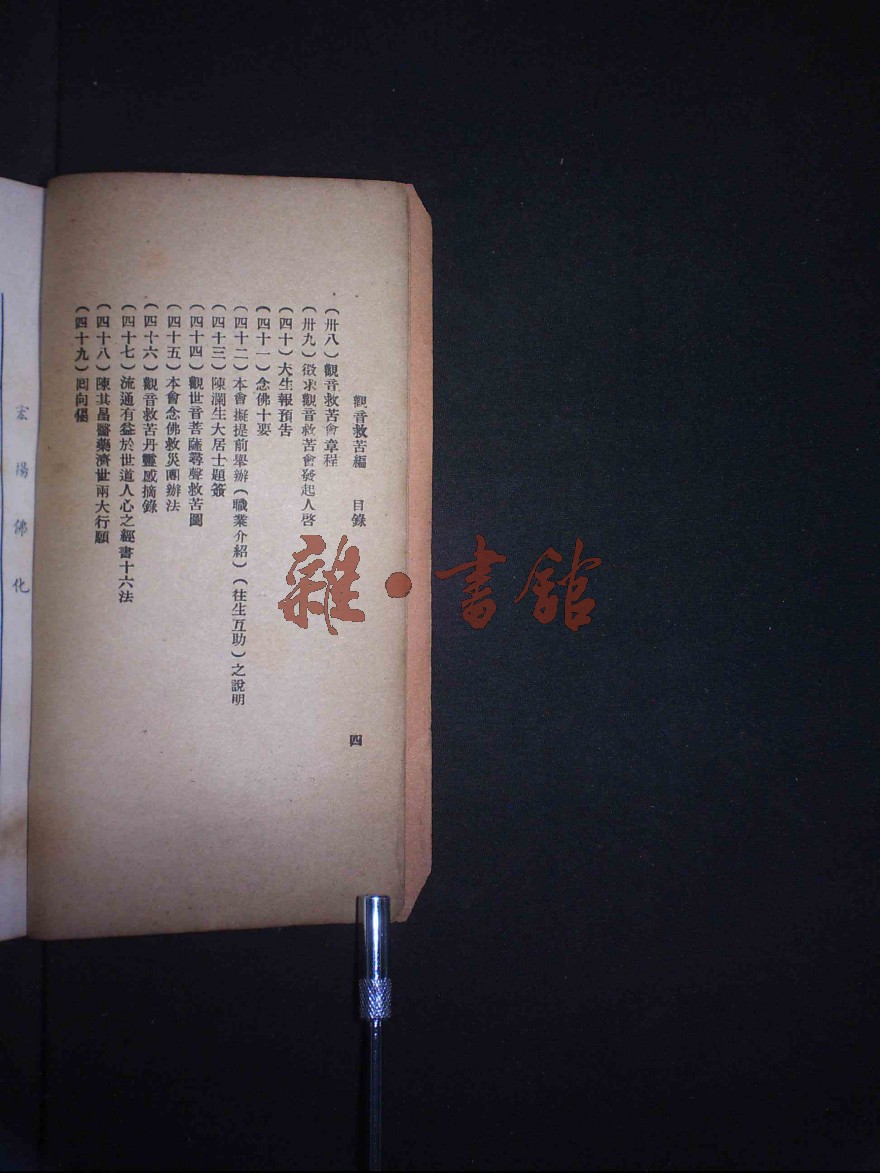 觀音救苦編 目錄 四
（卅八）觀音救苦會章程
（卅九）徵求觀音救苦會發起人啓
（四十）大生報預告
（四十一）念佛十要
（四十二）本會擬提前舉辦（職業介紹）（往生互助）之說明
（四十三）陳瀾生大居士題簽
（四十四）觀世音菩薩尋聲救苦圖
（四十五）本會念佛救災團辦法
（四十六）觀音救苦丹靈感摘錄
（四十七）流通有益於世道人心之經書十六法
（四十八）陳其昌醫藥濟世兩大行願
（四十九）囘向偈
宏揚佛化
雜·書館